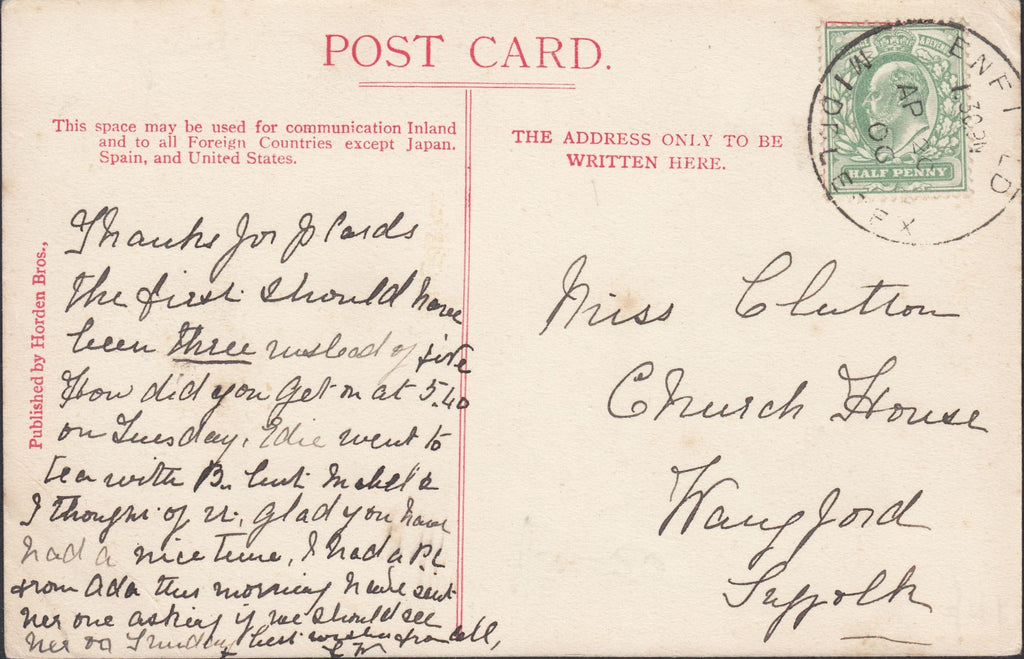 POST CARD.
This space may be used for communication Inland
and to all Foreign Countries except Japan,
Spain, and United States.
THE ADDRESS ONLY TO BE
WRITTEN HERE.
Published by Horden Bros.,
POSTAGE & REVENUE
HALF PENNY
ENFIELD
1 30 PM
AP
06
MIDDLESEX
Thanks for p Cards
the first should have
been three instead of five
How did you get on at 5.40
on Tuesday, Edie went to
tea with B. but Mabel &
I thought of it, glad you have
had a nice time, I had a P.C
from Ada this morning have sent
her one asking if we should see
her on Sunday best wishes from all,
Miss Clutton
Church House
Wangford
Suffolk